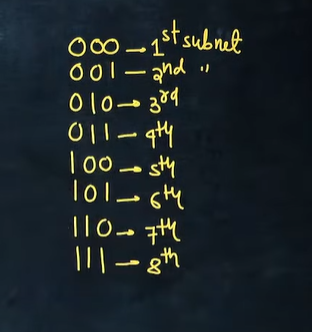 000 → 1st subnet
001 — 2nd "
010 → 3rd
011 — 4th
100 → 5th
101 → 6th
110 → 7th
111 → 8th